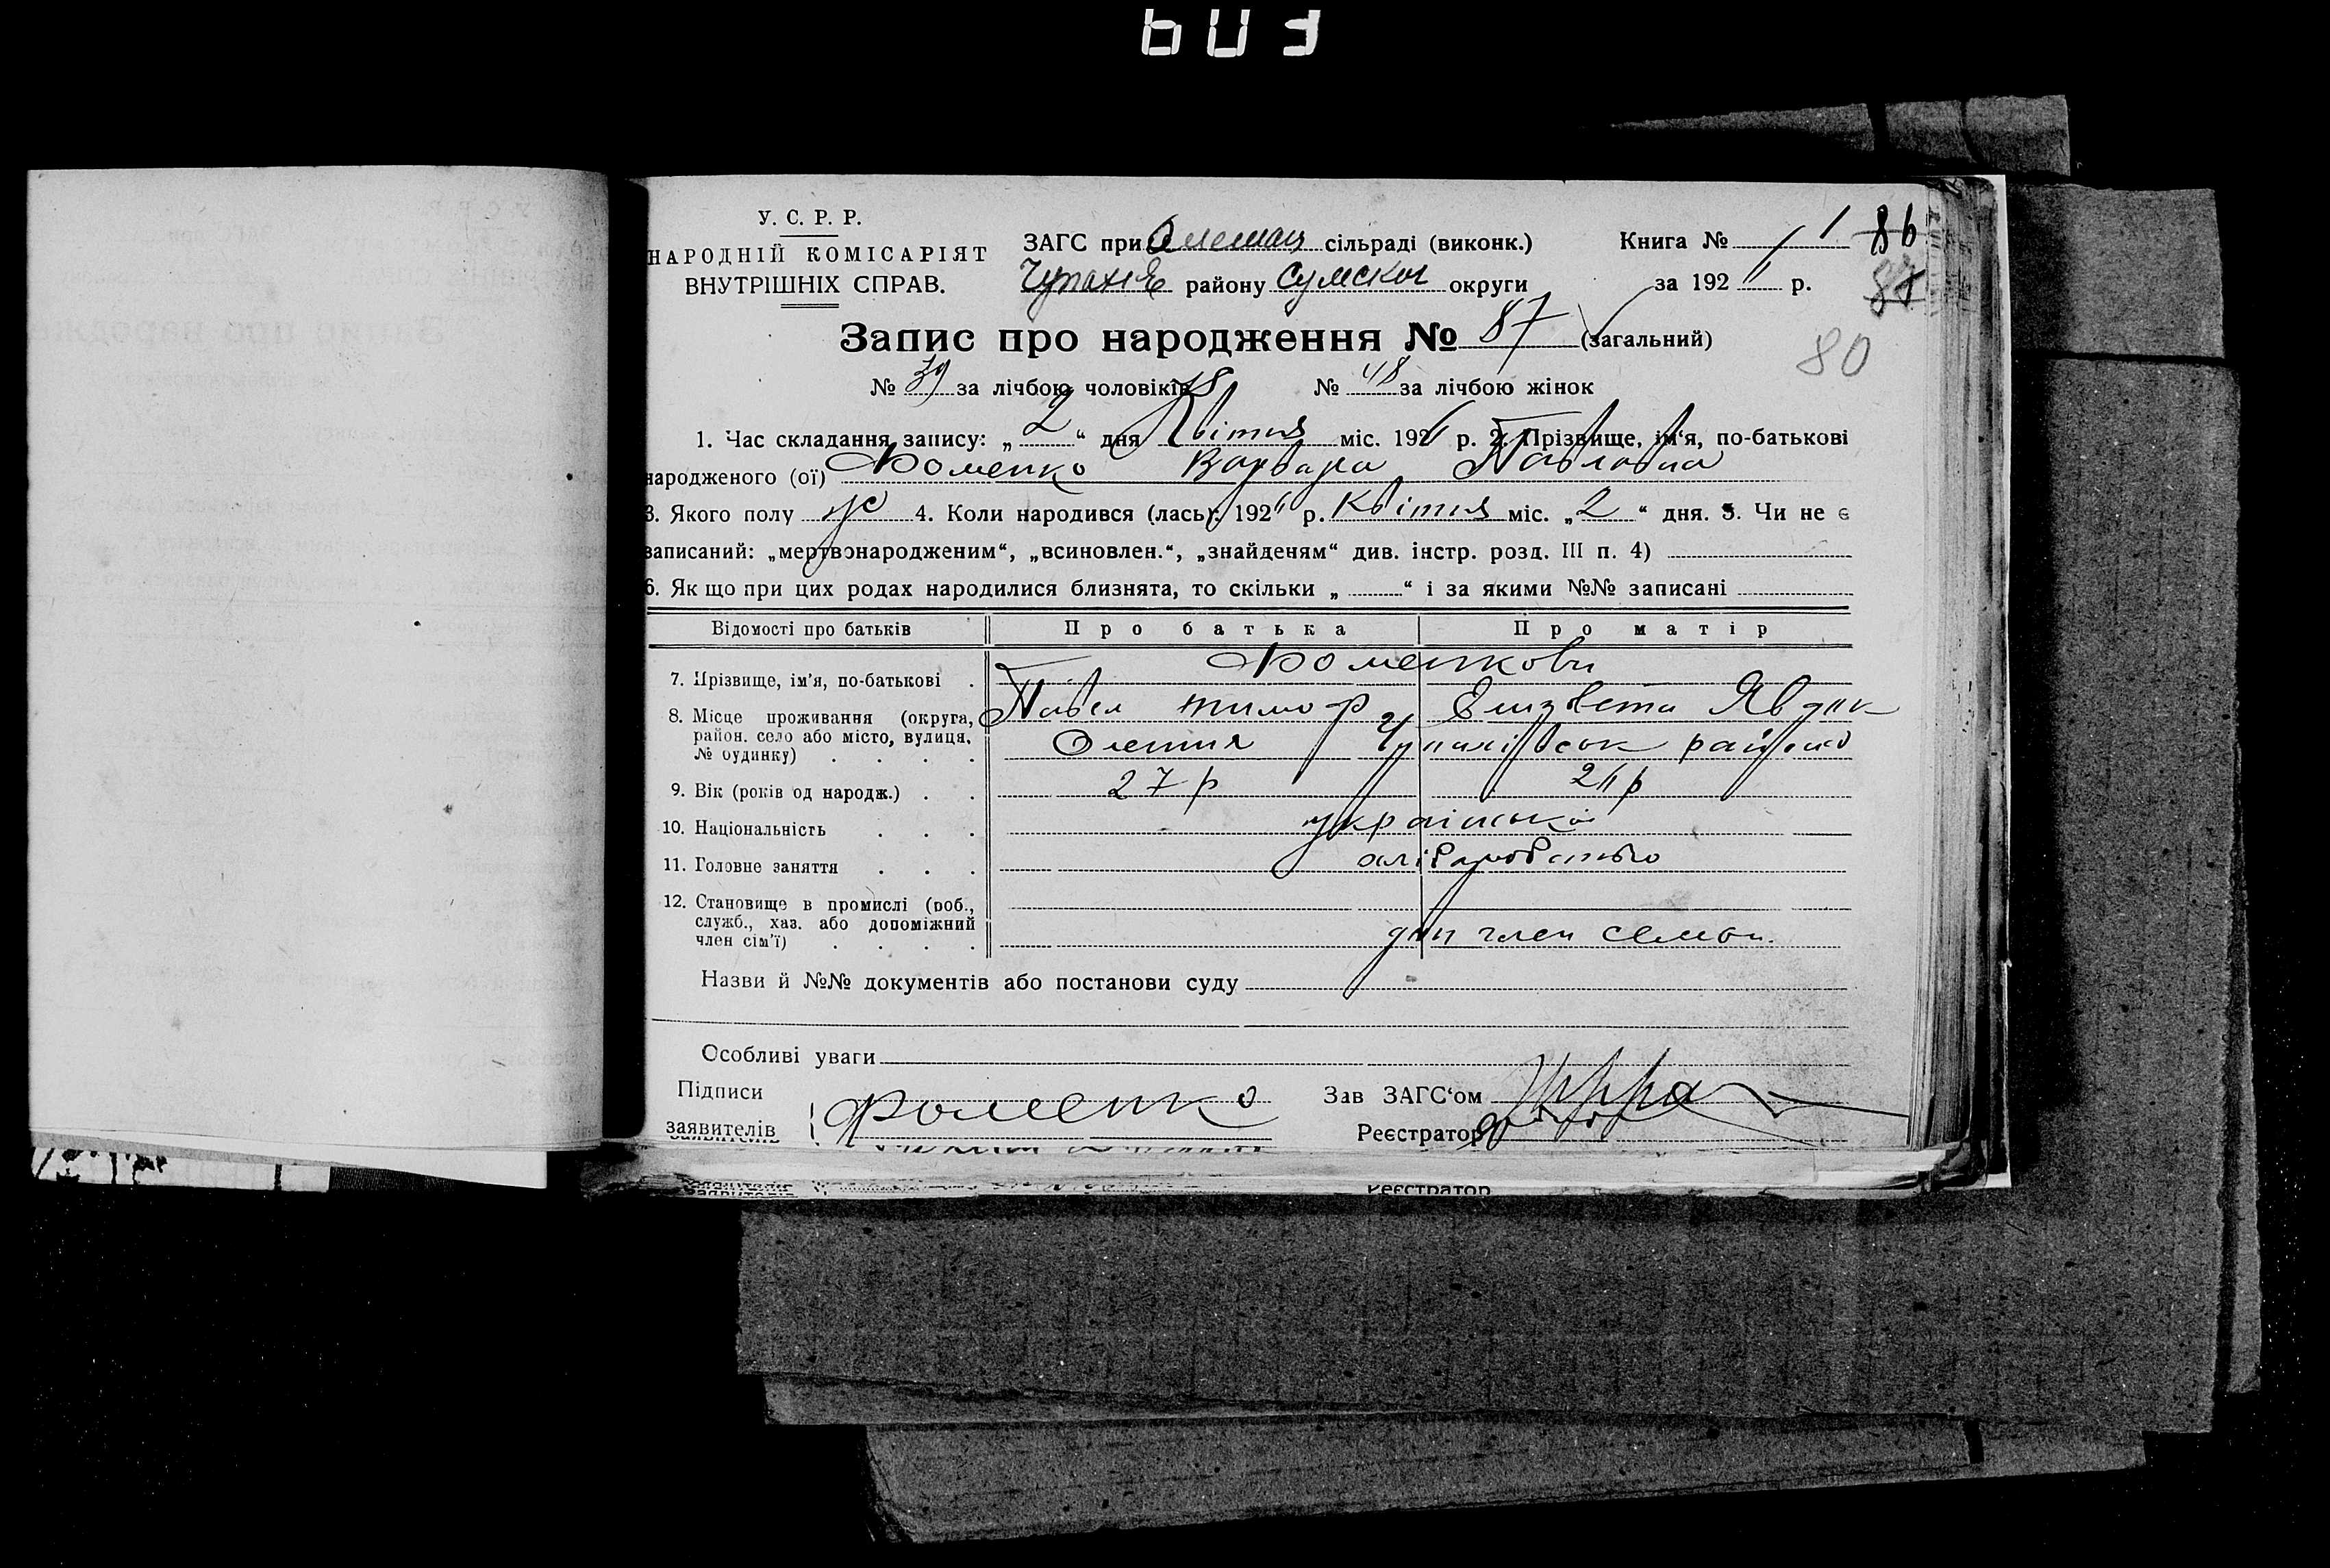 603
У. С. Р. Р.
НАРОДНІЙ КОМІСАРІЯТ
ВНУТРІШНІХ СПРАВ.
ЗАГС при сільраді (виконк.)
району Сумської округи
Книга № 1 86
за 192 р.
80
Запис про народження № 87 (загальний)
№ 39 за лічбою чоловіків № 48 за лічбою жінок
1. Час складання запису: „2“ дня Квітня міс. 192 р. 2. Прізвище, ім‘я, по-батькові
народженого (ої) Фоменко Варвара Павловна
3. Якого полу ж 4. Коли народився (лась): 192 р. Квітня міс. „2“ дня. 5. Чи не є
записаний: „мертвонародженим“, „всиновлен.“, „знайденям“ див. інстр. розд. III п. 4)
6. Як що при цих родах народилися близнята, то скільки „ “ і за якими №№ записані
Відомості про батьків Про батька Про матір
Фоменкови
7. Прізвище, ім‘я, по-батькові . Павел тимоф Елизвета Явдок
8. Місце проживання (округа,
район, село або місто, вулиця,
№ будинку) . . . .
райену
9. Вік (років од народж.) . . 27 р р
10. Національність . . . українська
11. Головне заняття . . .
12. Становище в промислі (роб.,
служб., хаз. або допоміжний
член сім‘ї) . . . . доп член семьи.
Назви й №№ документів або постанови суду
Особливі уваги
Підписи
заявителів Фоменко
Зав ЗАГС‘ом
Реєстратор
Реєстратор